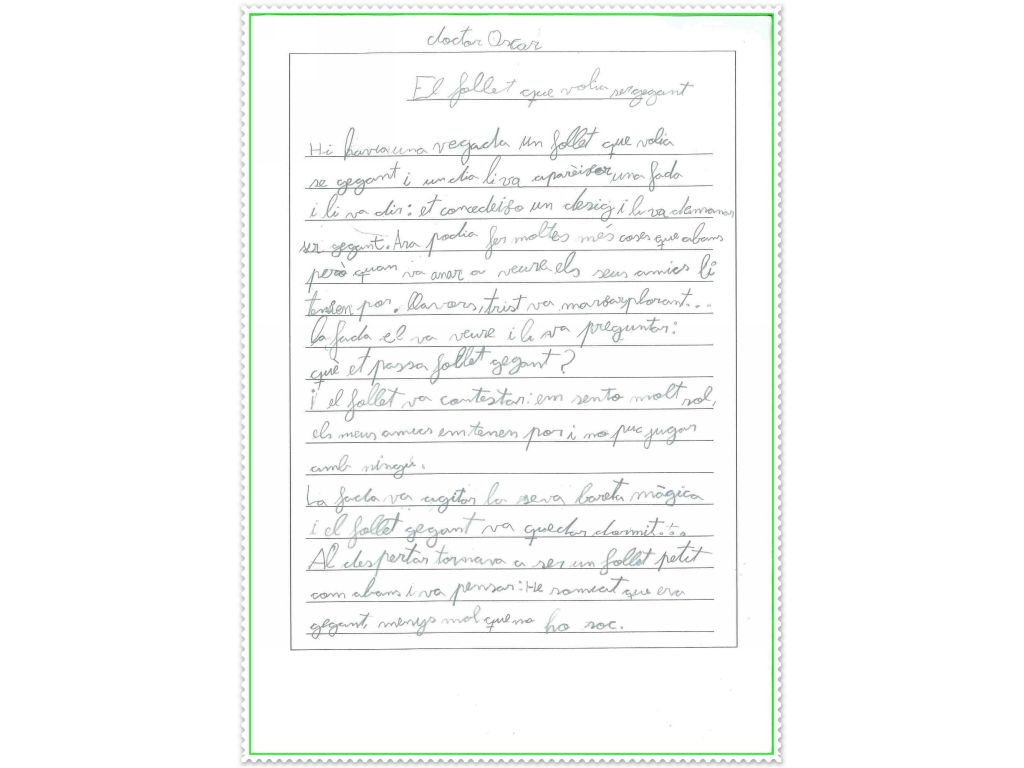 doctor Oscar
El follet que volia ser gegant
Hi havia una vegada un follet que volia
se gegant i un dia li va aparèixer una fada
i li va dir: et concedeixo un desig i li va demanar
ser gegant. Ara podia fer moltes més coses que abans
però quan va anar a veure els seus amics li
tenien por. Llavors, trist va marxar plorant...
La fada el va veure i li va preguntar:
què et passa follet gegant?
i el follet va contestar: em sento molt sol,
els meus amics em tenen por i no puc jugar
amb ningú.
La fada va agitar la seva bareta màgica
i el follet gegant va quedar dormit...
Al despertar tornava a ser un follet petit
com abans i va pensar: He somiat que era
gegant, menys mal que no ho soc.